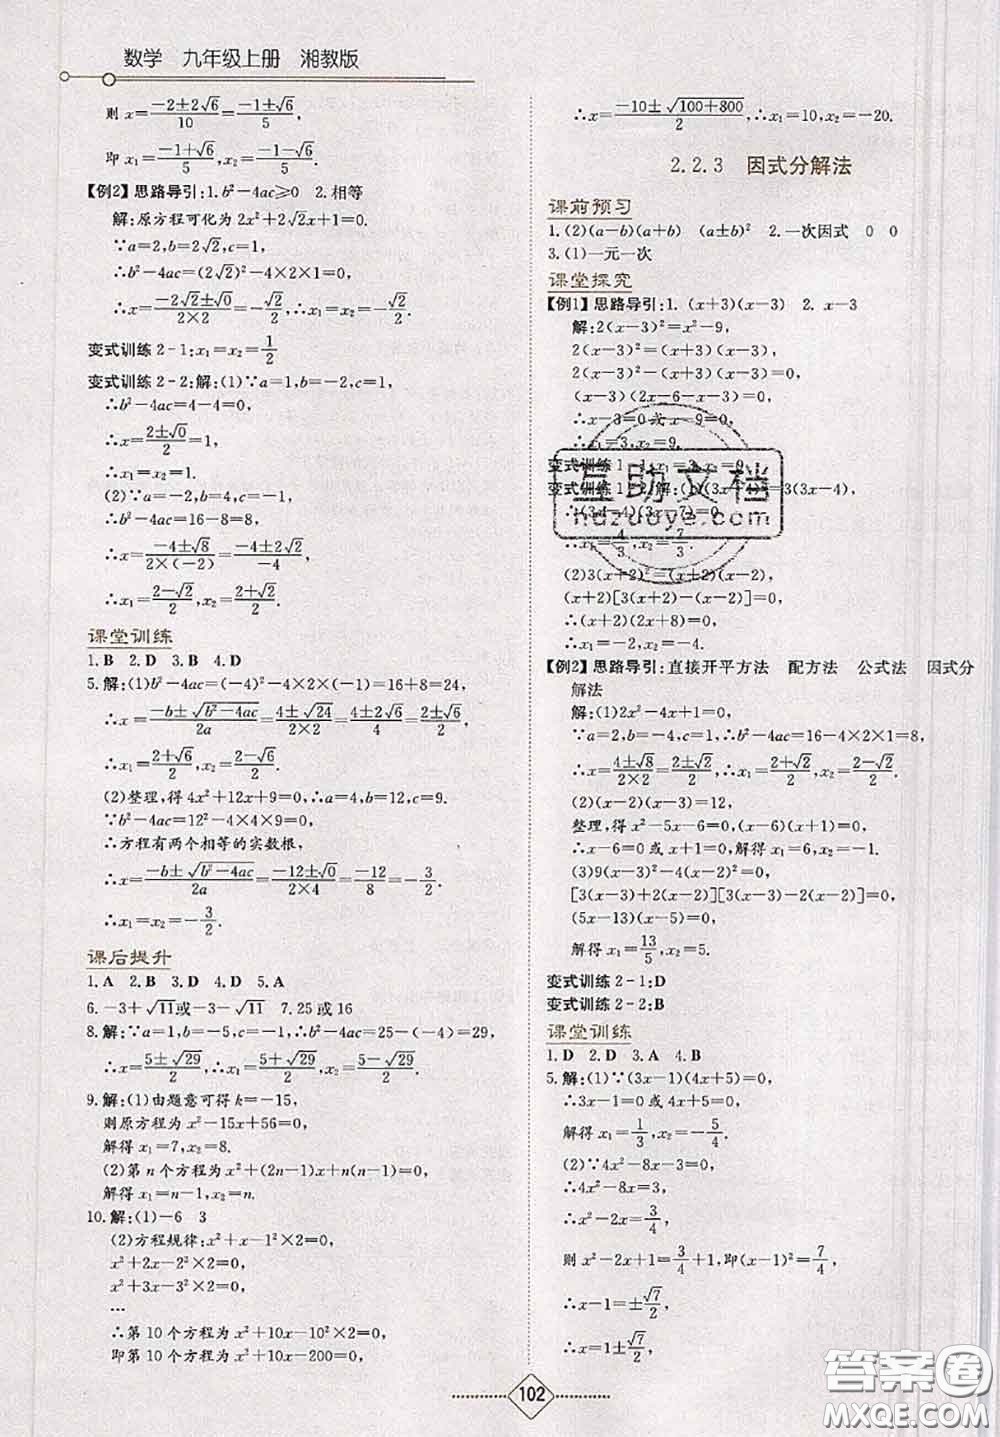 数学 九年级上册 湘教版
则 x=(-2±2√6)/10=(-1±√6)/5,
即 x₁=(-1+√6)/5, x₂=(-1-√6)/5.
【例2】思路导引:1.b²-4ac≥0 2.相等
解:原方程可化为 2x²+2√2x+1=0,
∵a=2,b=2√2,c=1,
∴b²-4ac=(2√2)²-4×2×1=0,
∴x=(-2√2±√0)/(2×2)=-√2/2,∴x₁=x₂=-√2/2.
变式训练 2-1:x₁=x₂=1/2
变式训练 2-2:解:(1)∵a=1,b=-2,c=1,
∴b²-4ac=4-4=0,
∴x=(2±√0)/2=1,
∴x₁=x₂=1.
(2)∵a=-2,b=4,c=-1,
∴b²-4ac=16-8=8,
∴x=(-4±√8)/(2×(-2))=(-4±2√2)/(-4),
∴x₁=(2-√2)/2,x₂=(2+√2)/2.
课堂训练
1.B 2.D 3.B 4.D
5.解:(1)b²-4ac=(-4)²-4×2×(-1)=16+8=24,
∴x=(-b±√(b²-4ac))/2a=(4±√24)/(2×2)=(4±2√6)/4=(2±√6)/2,
∴x₁=(2+√6)/2,x₂=(2-√6)/2.
(2)整理,得 4x²+12x+9=0,∴a=4,b=12,c=9.
∵b²-4ac=12²-4×4×9=0,
∴方程有两个相等的实数根,
∴x=(-b±√(b²-4ac))/2a=(-12±√0)/(2×4)=-12/8=-3/2,
∴x₁=x₂=-3/2.
课后提升
1.A 2.B 3.D 4.D 5.A
6.-3+√11或-3-√11 7.25 或 16
8.解:∵a=1,b=-5,c=-1,∴b²-4ac=25-(-4)=29,
∴x=(5±√29)/2,∴x₁=(5+√29)/2,x₂=(5-√29)/2.
9.解:(1)由题意可得 k=-15,
则原方程为 x²-15x+56=0,
解得 x₁=7,x₂=8.
(2)第 n 个方程为 x²+(2n-1)x+n(n-1)=0,
解得 x₁=n-1,x₂=n.
10.解:(1)-6 3
(2)方程规律:x²+x-1²×2=0,
x²+2x-2²×2=0,
x²+3x-3²×2=0,
…
∴第 10 个方程为 x²+10x-10²×2=0,
即第 10 个方程为 x²+10x-200=0,
∴x=(-10±√(100+800))/2,∴x₁=10,x₂=-20.
2.2.3 因式分解法
课前预习
1.(2)(a-b)(a+b) (a±b)² 2.一次因式 0 0
3.(1)一元一次
课堂探究
【例1】思路导引:1.(x+3)(x-3) 2.x-3
解:2(x-3)²=x²-9,
2(x-3)²=(x+3)(x-3),
2(x-3)²-(x+3)(x-3)=0,
(x-3)(2x-6-x-3)=0,
∴x-3=0 或 x-9=0,
∴x₁=3,x₂=9.
变式训练 1-1:x₁=3,x₂=9
变式训练 1-2:解:(1)(3x-4)²=3(3x-4),
∴(3x-4)(3x-7)=0,
∴x₁=4/3,x₂=7/3.
(2)3(x+2)²=(x+2)(x-2)
(x+2)[3(x+2)-(x-2)]=0,
∴(x+2)(2x+8)=0,
∴x₁=-2,x₂=-4.
【例2】思路导引:直接开平方法 配方法 公式法 因式分
解法
解:(1)2x²-4x+1=0,
∵a=2,b=-4,c=1,∴b²-4ac=16-4×2×1=8,
∴x=(4±√8)/(2×2)=(2±√2)/2,∴x₁=(2+√2)/2,x₂=(2-√2)/2.
(2)(x-2)(x-3)=12,
整理,得 x²-5x-6=0,(x-6)(x+1)=0,
∴x-6=0 或 x+1=0,解得 x₁=6,x₂=-1.
(3)9(x-3)²-4(x-2)²=0,
[3(x-3)+2(x-2)][3(x-3)-2(x-2)]=0,
(5x-13)(x-5)=0,
解得 x₁=13/5,x₂=5.
变式训练 2-1:D
变式训练 2-2:B
课堂训练
1.D 2.D 3.A 4.B
5.解:(1)∵(3x-1)(4x+5)=0,
∴3x-1=0 或 4x+5=0,
解得 x₁=1/3,x₂=-5/4.
(2)∵4x²-8x-3=0,
∴4x²-8x=3,
∴x²-2x=3/4,
则 x²-2x+1=3/4+1,即(x-1)²=7/4,
∴x-1=±√7/2,
∴x=1±√7/2,
102
互助文档
hdzuoye.com
答案圈
MXQE.COM